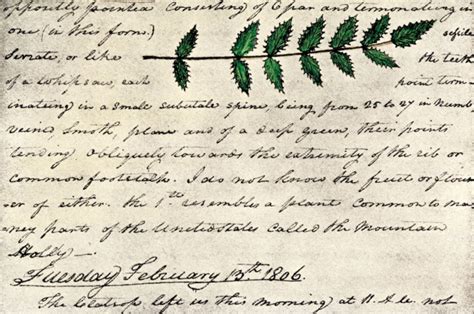 oppositly pointed consisting of 6 par and termonateing in
one (in this form.) sessile
serrate, or like the teeth
of a whipsaw, each point term
inateing in a small subulate spine, being from 25 to 27 in numb
veined, smoth, plane and of a deep green, their points
tending obliquely towards the extremity of the rib or
common footstalk. I do not know the fruit or flow
er of either. the 1st resembles a plant common to ma
ney parts of the United States called the Mountain
Holly—
Tuesday February 13th 1806.
The Clatsop left us this morning at 11. A.M. not